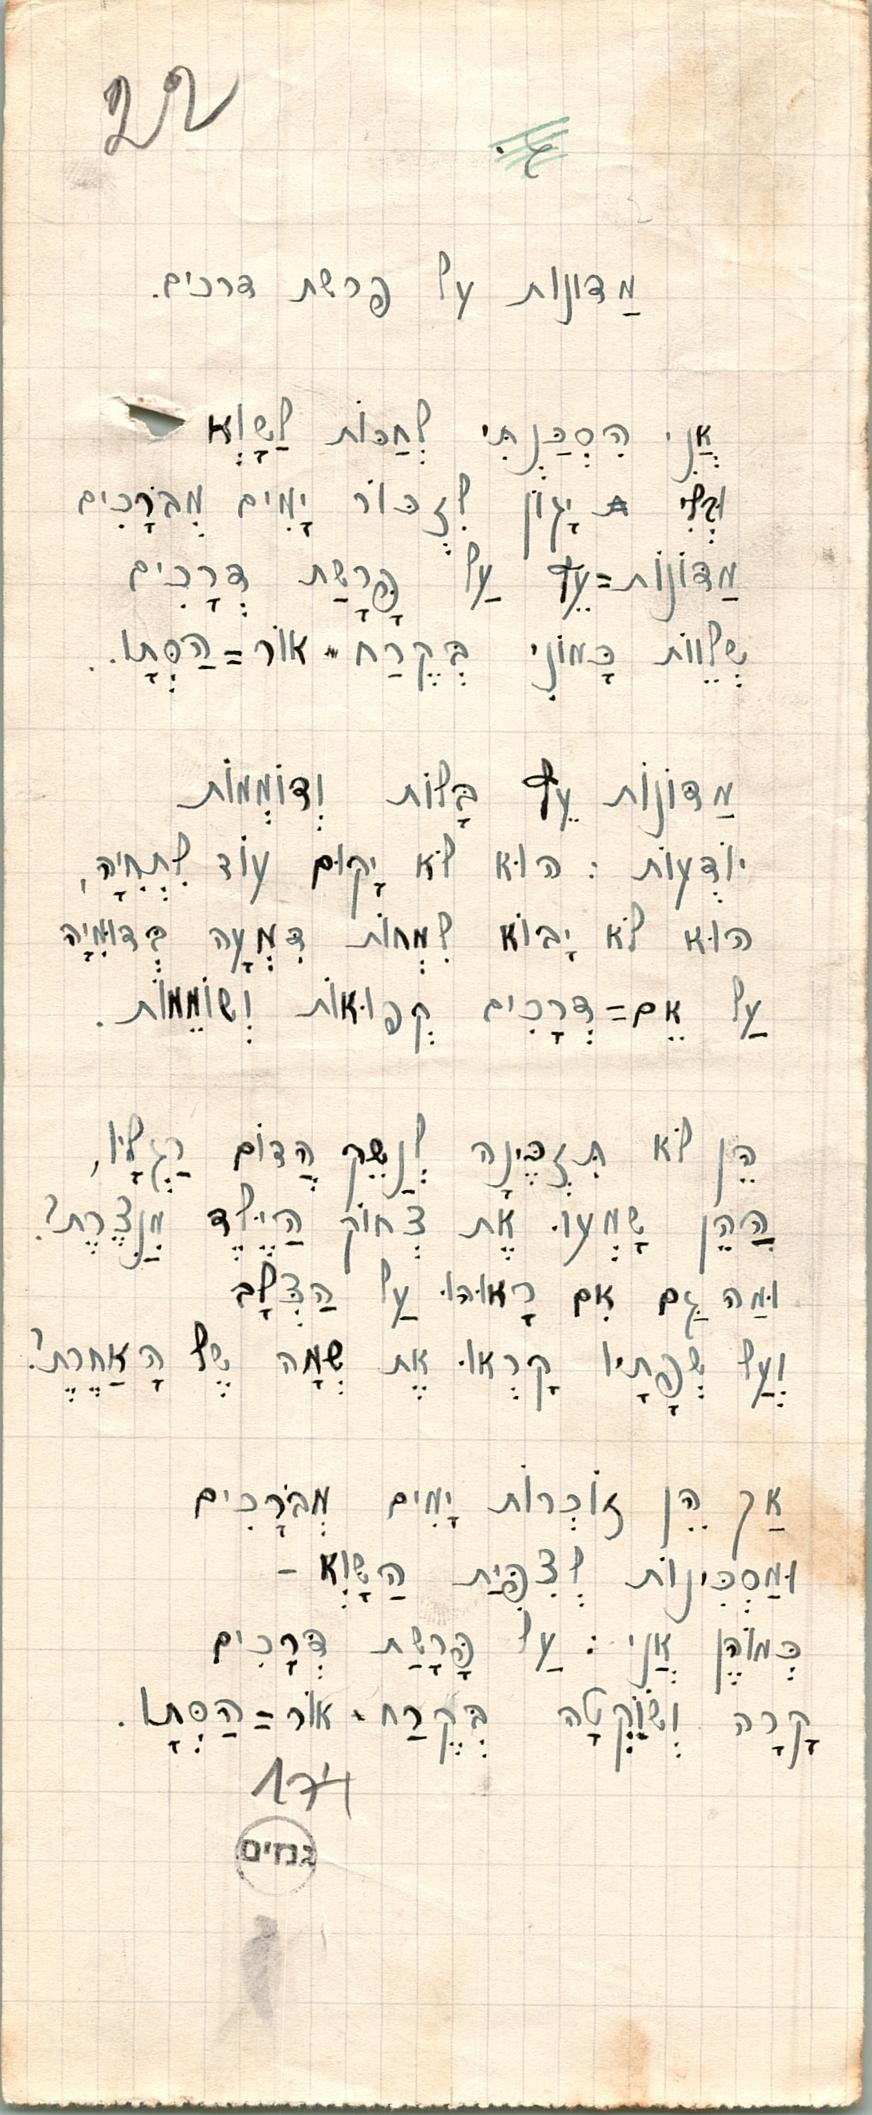 22
ג.
מַדונות על פרשת דרכים.
אֲנִי הִסְכַּנְתִּי לְחַכּוֹת לַשָּׁוְא
וּבְלִי יָגוֹן לִזְכּוֹר יָמִים מְבֹרָכִים
מַדּוֹנוֹת=עֵץ עַל פָּרָשַׁת דְּרָכִים
שְׁלֵווֹת כָּמוֹנִי בְּקֶרַח-אוֹר=הַסְּתָו.
מַדּוֹנוֹת עֵץ בָּלוֹת וְדוֹמְמוֹת
יוֹדְעוֹת : הוּא לֹא יָקוּם עוֹד לִתְחִיָּה,
הוּא לֹא יָבוֹא לִמְחוֹת דִּמְעָה בְּדוּמִיָּה
עַל אֵם=דְּרָכִים קְפוּאוֹת וְשׁוֹמֵמוֹת.
הֵן לֹא תִּזְכֶּינָה לְנַשֵּׁק הֲדוֹם רַגְלָיו,
הֲהֵן שָׁמְעוּ אֶת צְחוֹק הַיֶּלֶד מִנַּצֶּרֶת?
וּמַה גַּם אִם רָאוּהוּ עַל הַצְּלָב
וְעַל שְׂפָתָיו קָרְאוּ אֶת שְׁמָהּ שֶׁל הָאַחֶרֶת?
אַךְ הֵן זוֹכְרוֹת יָמִים מְבֹרָכִים
וּמַסְכִּינוֹת לְצִפִּיַּת הַשָּׁוְא –
כְּמוֹהֶן אֲנִי : עַל פָּרָשַׁת דְּרָכִים
קָרָה וְשׁוֹקְטָה בְּקֶרַח-אוֹר=הַסְּתָו.
גנזים